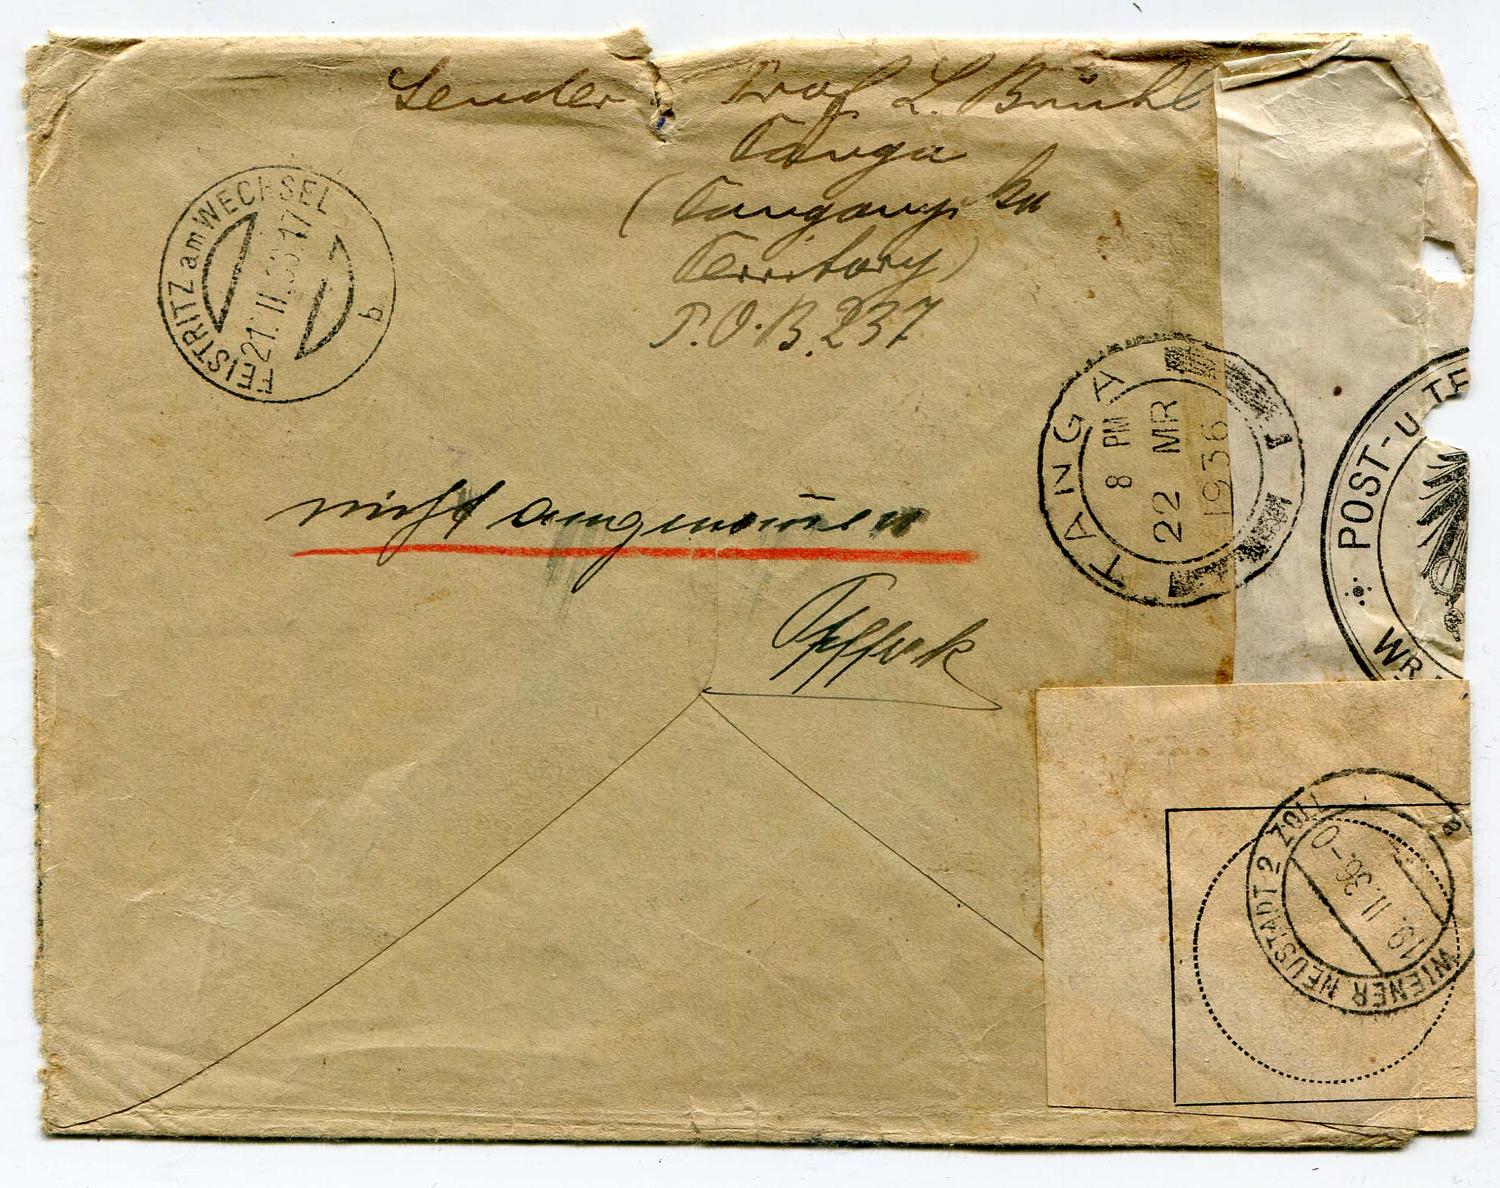 Sender Prof L. Brühl
Tanga
(Tanganyika
Territory)
P.O.B. 237
FEISTRITZ am WECHSEL
21. II. 36. 17
b
TANGA
8 PM
22 MR
1936
nicht angenom̄en
POST- u. TE
WR.
WIENER NEUSTADT 2 ZOLL
19. II. 36.-0
a